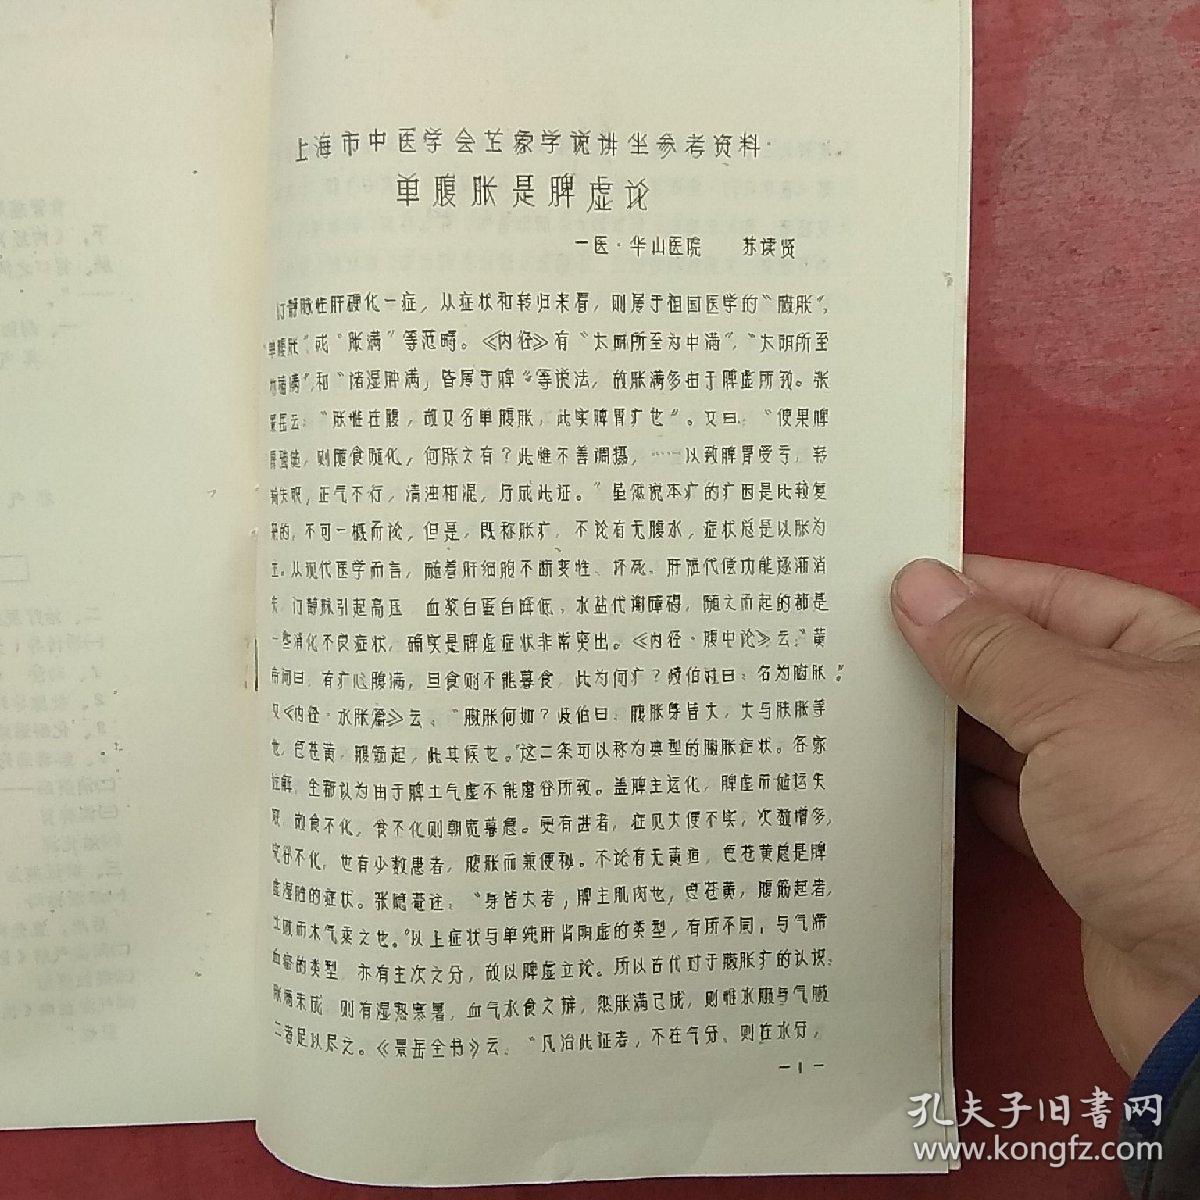 上海市中医学会芷象学说讲坐参考资料
单腹胀是脾虚论
一医·华山医院 苏读贤
门静脉性肝硬化一症，从症状和转归来看，则属于祖国医学的“臌胀”，
“单腹胀”或“胀满”等范畴。《内径》有“太阴所至为中满”，“太阴所至
为蓄满”，和“诸湿肿满，皆属于脾”等说法，故胀满多由于脾虚所致。张
景岳云：“胀惟在腹，故又名单腹胀，此实脾胃疒也”。又曰：“使果脾
胃强健，则随食随化，何胀之有？此惟不善调摄，……以致脾胃受亏，转
输失职，正气不行，清浊相混，乃成此证。”虽然说本疒的疒因是比较复
杂的，不可一概而论，但是，既称胀疒，不论有无腹水，症状总是以胀为
主。从现代医学而言，随着肝细胞不断变性、坏死、肝脏代偿功能逐渐消
失，门静脉引起高压，血浆白蛋白降低，水盐代谢障碍，随之而起的都是
一些消化不良症状，确实是脾虚症状非常突出。《内径·腹中论》云：“黄
帝问曰，有疒心腹满，旦食则不能暮食，此为何疒？岐伯对曰：名为臌胀。”
又《内径·水胀篇》云：“臌胀何如？岐伯曰：腹胀身皆大，大与肤胀等
也，色苍黄，腹筋起，此其候也。”这二条可以称为典型的臌胀症状。各家
注解，全都认为由于脾土气虚不能磨谷所致。盖脾主运化，脾虚而健运失
职，故食不化，食不化则朝宽暮急。更有甚者，症见大便不实，次数增多，
完谷不化，也有少数患者，腹胀而兼便秘。不论有无黄疸，色苍黄总是脾
虚湿胜的症状。张隐菴注：“身皆大者，脾主肌肉也，色苍黄，腹筋起者，
土败而木气乘之也。”以上症状与单纯肝肾阴虚的类型，有所不同，与气滞
血瘀的类型，亦有主次之分，故以脾虚立论。所以古代对于臌胀疒的认识：
胀满未成，则有湿热寒暑，血气水食之辨，然胀满已成，则惟水臌与气臌
二者足以尽之。《景岳全书》云：“凡治此证者，不在气分，则在水分，
—1—
孔夫子旧书网
www.kongfz.com